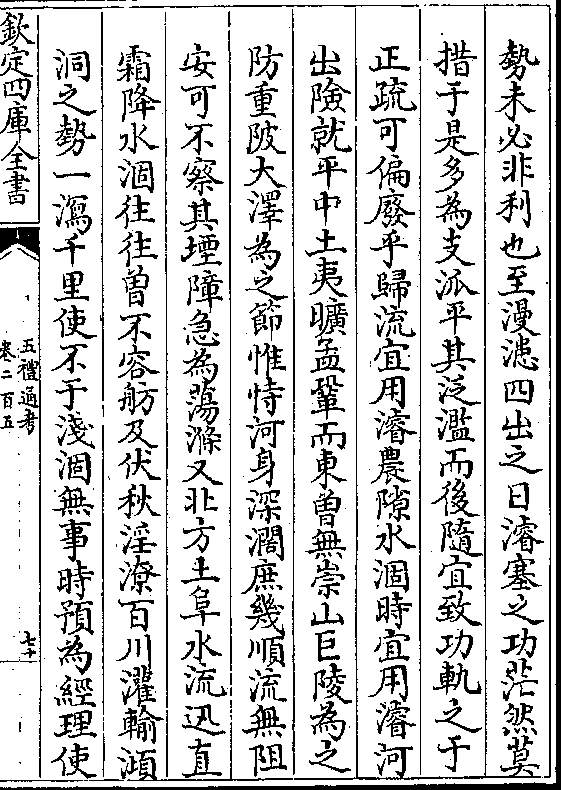 勢未必非利也至漫漶四出之日濬塞之功茫然莫
措于是多為支派平其泛濫而後隨宜致功軌之于
正疏可偏廢乎歸流宜用濬農隙水涸時宜用濬河
出險就平中土夷曠孟鞏而東曾無崇山巨陵為之
防重陂大澤為之節惟恃河身深濶庶幾順流無阻
安可不察其堙障急為蕩滌又北方土阜水流迅直
霜降水涸往往曾不容舫及伏秋淫潦百川灌輸澒
洞之勢一瀉千里使不于淺涸無事時預為經理使
欽定四庫全書
五禮通考
卷二百五
七十